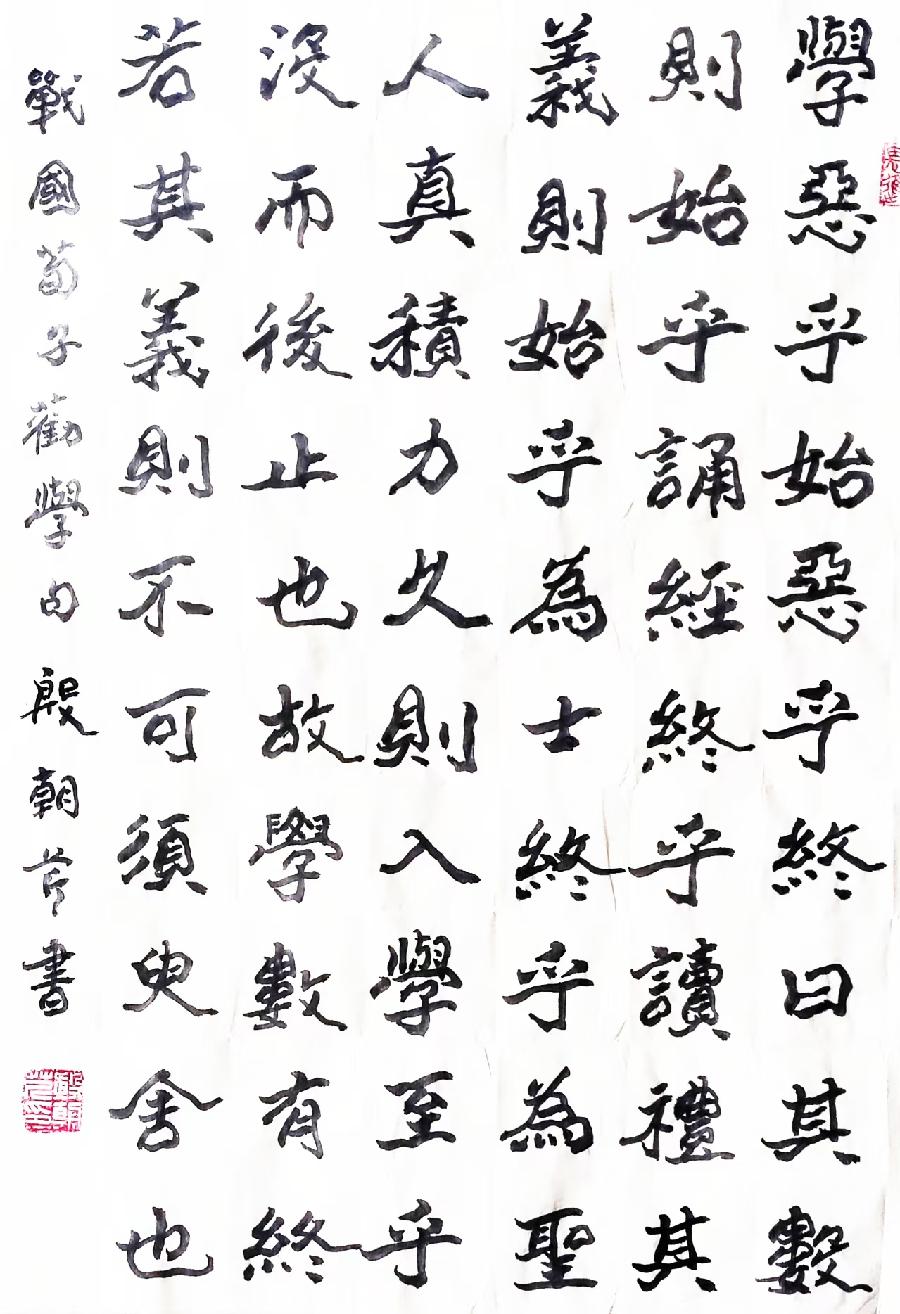 學惡乎始惡乎終曰其數
則始乎誦經終乎讀禮其
義則始乎為士終乎為聖
人真積力久則入學至乎
沒而後止也故學數有終
若其義則不可須臾舍也
戰國荀子勸學句殷朝芹書